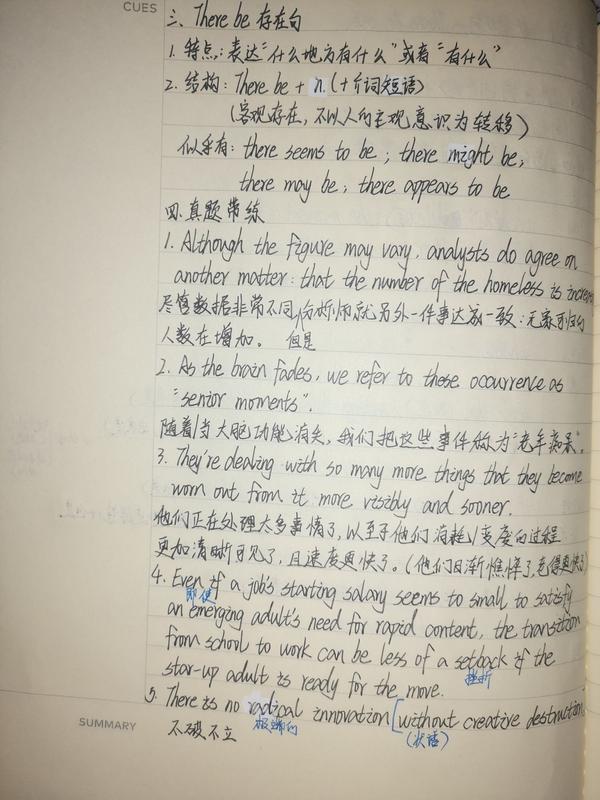 CUES
三、There be 存在句
1. 特点：表达"什么地方有什么"或者"有什么"
2. 结构：There be + n.(十介词短语)
(客观存在，不以人的主观意识为转移)
似乎有：there seems to be；there might be；
there may be；there appears to be
四.真题带练
1. Although the figure may vary, analysts do agree on
another matter: that the number of the homeless is
尽管数据非常不同，但是分析师就另外一件事达成一致：无家可归的
人数在增加。
2. As the brain fades, we refer to these occurrence as
"senior moments".
随着当大脑功能消失，我们把这些事件称为"老年痴呆"。
3. They're dealing with so many more things that they become
worn out from it more visibly and sooner.
他们正在处理太多事情了，以至于他们消耗/变废的过程
更加清晰可见了，且速度更快了。(他们日渐憔悴了,老得更快了)
4. Even if a job's starting salary seems to small to satisfy
即使
an emerging adult's need for rapid content, the transition
from school to work can be less of a setback if the
挫折
star-up adult is ready for the move.
5. There is no radical innovation [without creative destruction
极端的
(状语)
不破不立
SUMMARY